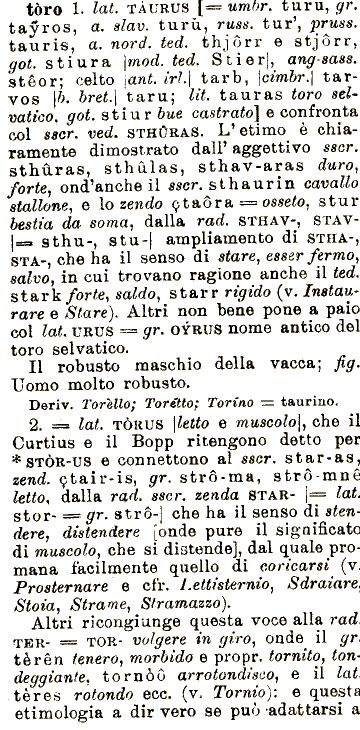 tòro 1. lat. TÁURUS [= umbr. turu, gr.
taŷros, a. slav. turŭ, russ. tur', pruss.
tauris, a. nord. ted. thjôrr e stjôrr,
got. stiura |mod. ted. Stier|, ang-sass.
stêor; celto |ant. irl.| tarb, |cimbr.| tar-
vos |b. bret.| taru; lit. tauras toro sel-
vatico, got. stiur bue castrato] e confronta
col sscr. ved. STHÛRAS. L'etimo è chia-
ramente dimostrato dall'aggettivo sscr.
sthûras, sthûlas, sthav-aras duro,
forte, ond'anche il sscr. sthaurin cavallo
stallone, e lo zendo çtaôra = osseto, stur
bestia da soma, dalla rad. STHAV-, STAV-
|= sthu-, stu-| ampliamento di STHA-,
STA-, che ha il senso di stare, esser fermo,
salvo, in cui trovano ragione anche il ted.
stark forte, saldo, starr rigido (v. Instau-
rare e Stare). Altri non bene pone a paio
col lat. URUS = gr. OÝRUS nome antico del
toro selvatico.
Il robusto maschio della vacca; fig.
Uomo molto robusto.
Deriv. Torèllo; Torétto; Toríno = taurino.
2. = lat. TÒRUS |letto e muscolo|, che il
Curtius e il Bopp ritengono detto per
* STÒR-US e connettono al sscr. star-as,
zend. çtair-is, gr. strô-ma, strô-mnê
letto, dalla rad. sscr. zenda STAR- |= lat.
stor- = gr. strô-| che ha il senso di sten-
dere, distendere [onde pure il significato
di muscolo, che si distende], dal quale pro-
mana facilmente quello di coricarsi (v.
Prosternare e cfr. Lettisternio, Sdraiare,
Stoia, Strame, Stramazzo).
Altri ricongiunge questa voce alla rad.
TER- = TOR- volgere in giro, onde il gr.
tèrên tenero, morbido e propr. tornito, ton-
deggiante, tornòô arrotondisco, e il lat.
tères rotondo ecc. (v. Tornio): e questa
etimologia a dir vero se può adattarsi a